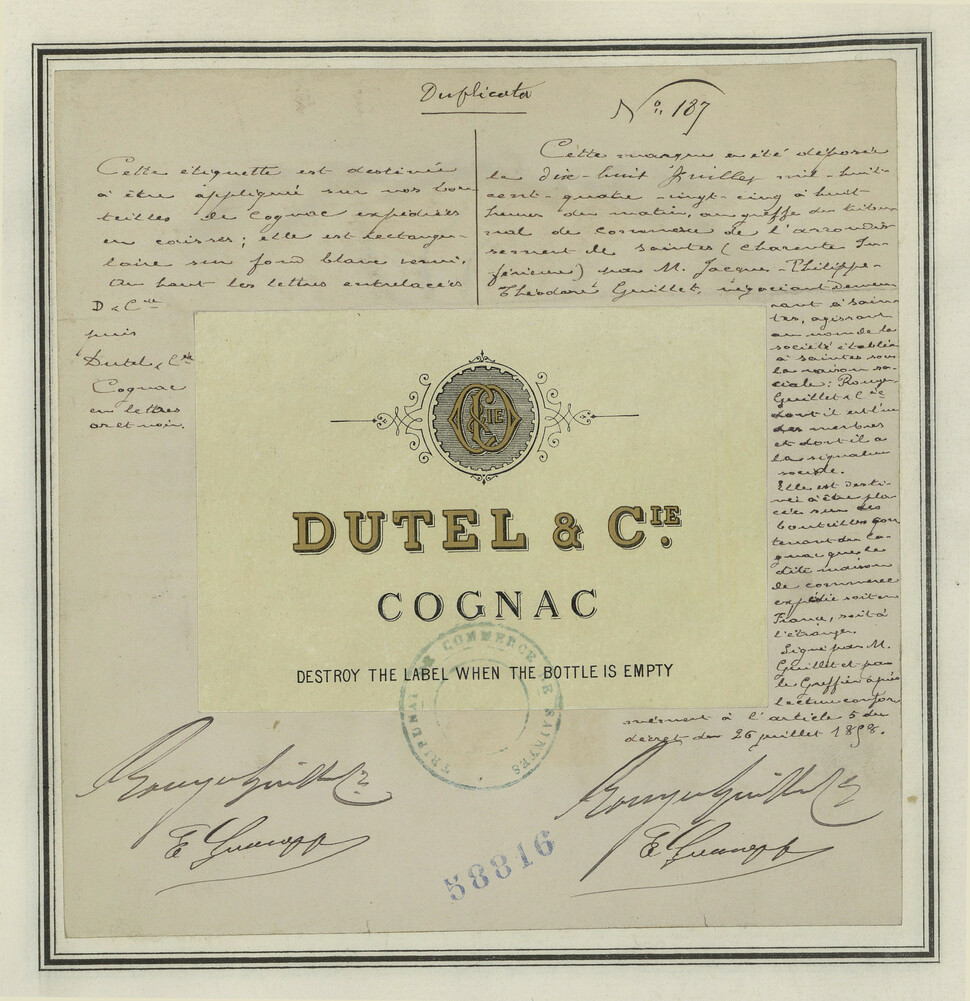 Duplicata
N° 187
Cette étiquette est destinée
à être appliqué sur nos bou
teilles de Cognac expédiées
en caisses; elle est rectangu-
laire sur fond blanc verni.
Au haut les lettres entrelacées
D & Cie
puis
Dutel & Cie
Cognac
en lettres
or et noir.
Cette marque a été déposée
le dix-huit Juillet mil-huit-
cent-quatre-vingt-cinq à huit
heures du matin, au greffe du tribu
nal de commerce de l'arrondis
sement de Saintes (Charente In-
férieure) par M. Jacques-Philippe-
Théodore Guillet, négociant demeu
rant à Sain
tes, agissant
au nom de la
société établie
à Saintes sous
la raison so-
ciale: Rouyer
Guillet & Cie
dont il est l'un
des membres
et dont il a
la signature
sociale.
Elle est desti-
née à être pla
cée sur des
bouteilles con
tenant du Co-
gnac que la
dite maison
de commerce
expédie soit en
France, soit à
l'étranger.
Signé par M.
Guillet et par
le Greffier après
lecture confor
mément à l'article 5 du
décret du 26 juillet 1858.
CIE
DUTEL & CIE.
COGNAC
DESTROY THE LABEL WHEN THE BOTTLE IS EMPTY
TRIBUNAL DE COMMERCE DE SAINTES
Rouyer Guillet &
Rouyer Guillet &
58816